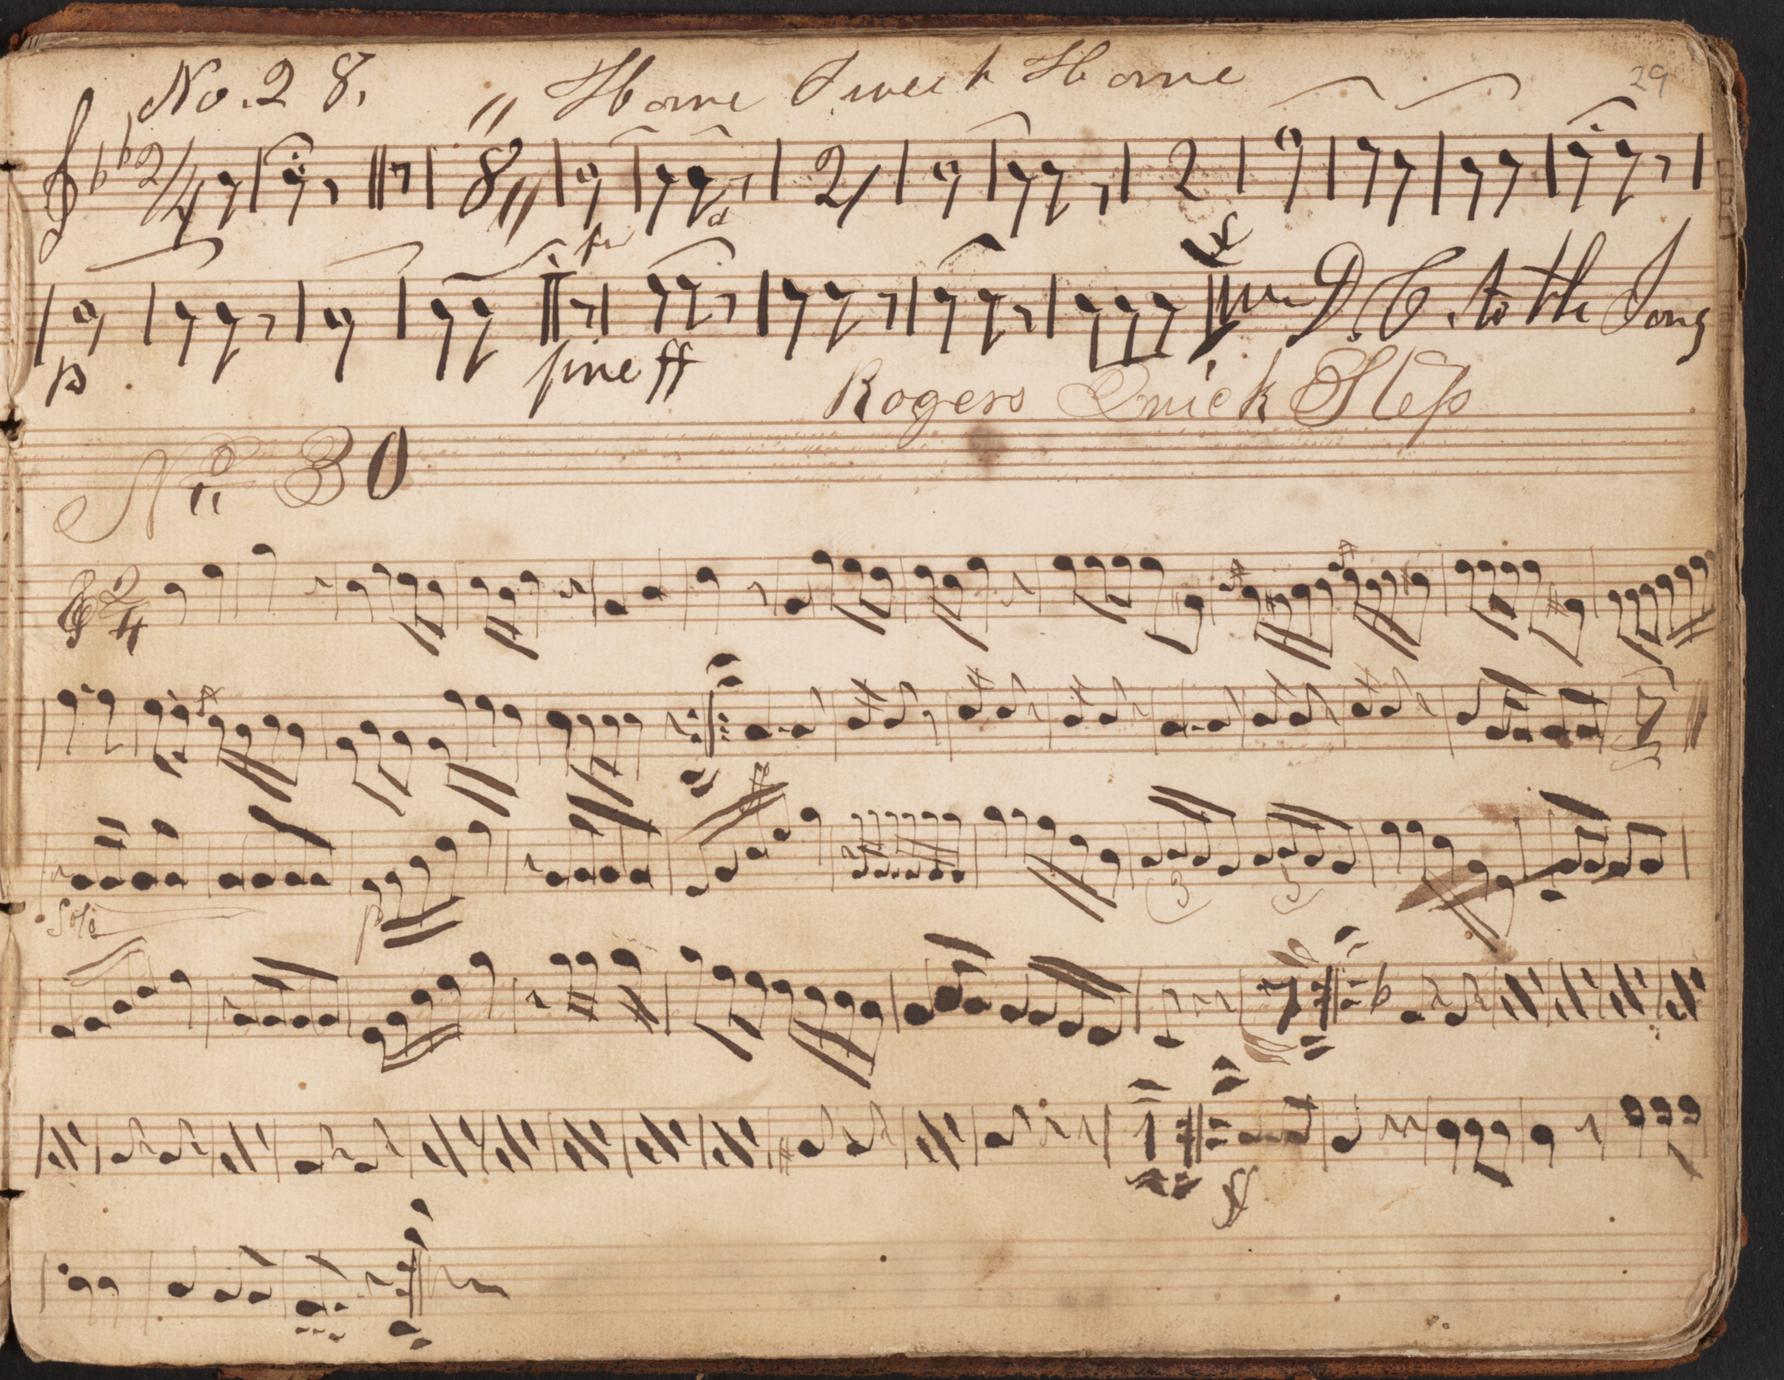 No. 28. Home Sweet Home 29
2/4 8 2 2
p fine ff D.C. to the Song
Rogers Quick Step
No 30
2/4
Solo p 3 3
ff